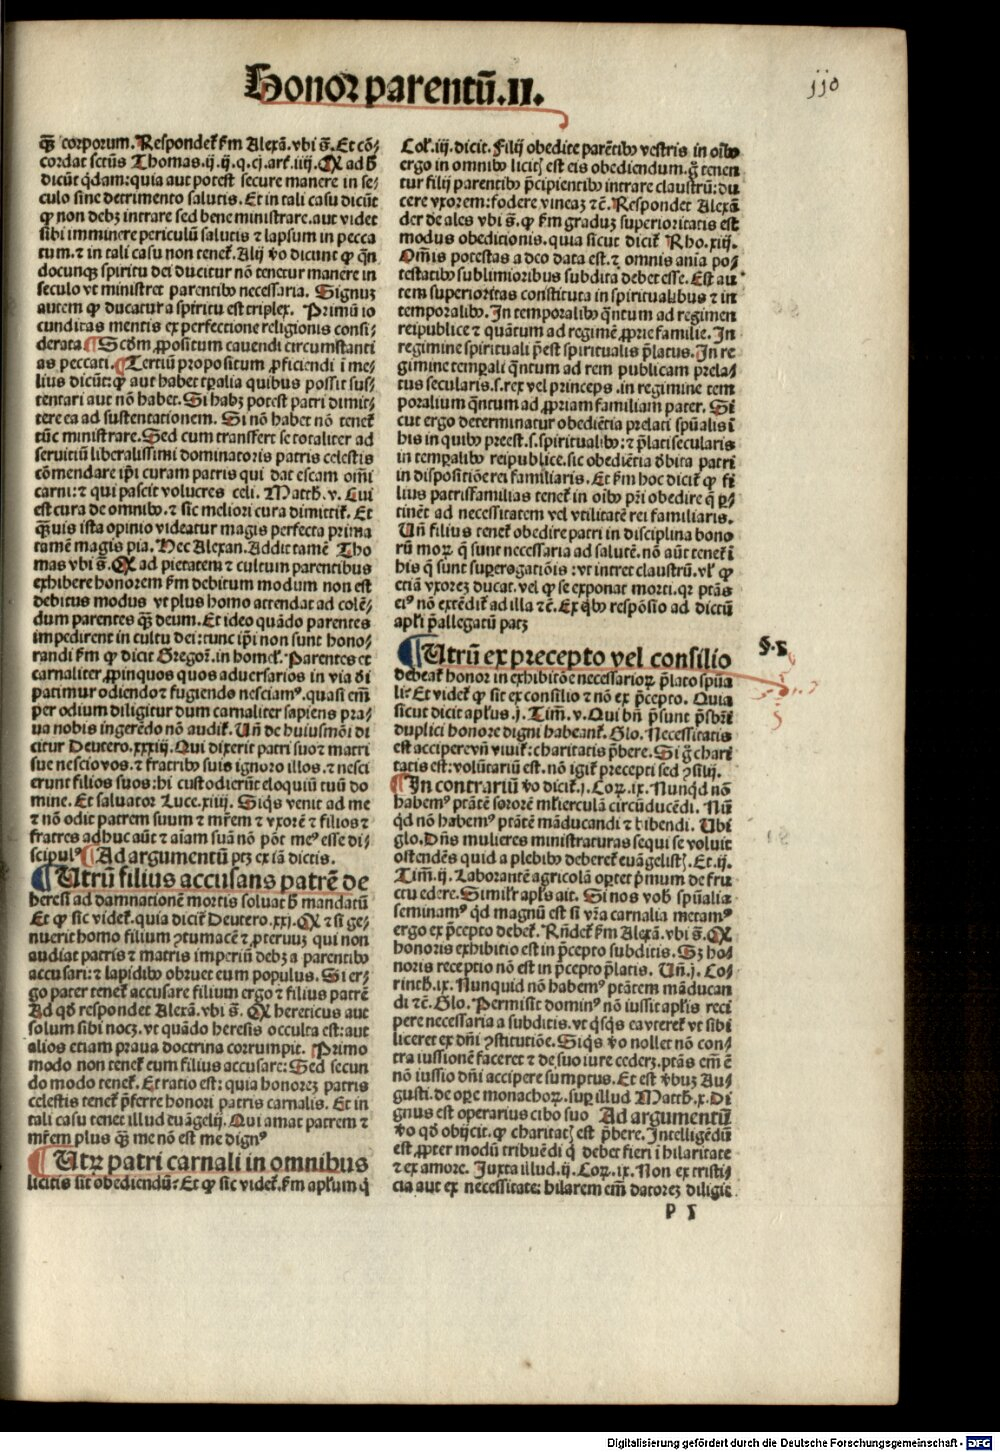 Honor parentū.II.
jj0
q̄ꝫ corporum. Respondet͛ ẜm Alexā. vbi s̄. Et cō⸗
cordat sctūs Thomas.ij.ij.q.cj.art͛.iiij. Qꝛ ad h̄
dicūt q̇dam: quia aut potest secure manere in se⸗
culo sine detrimento salutis. Et in tali casu dicūt
ꝙ non debꝫ intrare sed bene ministrare. aut videt
sibi imminere periculū salutis ⁊ lapsum in pecca
tum. ⁊ in tali casu non tenet͛. Alij v̊o dicunt ꝙ qn̄
docunqꝫ spiritu dei ducitur nō tenetur manere in
seculo vt ministret parentibꝰ necessaria. Signuꝫ
autem ꝙ ducatur a spiritu est triplex. Primū io
cunditas mentis ex perfectione religionis consi⸗
derata ¶ Scd̄m ꝓpositum cauendi circumstanti
as peccati. ¶ Tertiū propositum ꝓficiendi ī me⸗
lius dicūt: ꝙ aut habet tp̄alia quibus possit sus⸗
tentari aut nō habet. Si habꝫ potest patri dimit⸗
tere ea ad sustentationem. Si nō habet nō tenet͛
tūc ministrare. Sed cum transfert se totaliter ad
seruitiū liberalissimi dominatoris patris celestis
cōmendare ip̄i curam patris qui dat escam oīni
carni: ⁊ qui pascit volucres celi. Matth. v. Cui
est cura de omnibꝰ. ⁊ sic meliori cura dimittit͛. Et
q̄ꝫuis ista opinio videatur magis perfecta prima
tamē magis pia. Hec Alexan. Addit tamē Tho
mas vbi s̄. Qꝛ ad pietatem ⁊ cultum parentibus
exhibere honorem ẜm debitum modum non est
debitus modus vt plus homo attendat ad colē⸗
dum parentes q̄ꝫ deum. Et ideo quādo parentes
impedirent in cultu dei: tunc ip̄i non sunt hono⸗
randi ẜm ꝙ dicit Gregoꝛ. in homel͛. Parentes et
carnaliter ꝓpinquos quos aduersarios in via dī
patimur odiendo ⁊ fugiendo nesciamꝰ. quasi em̄
per odium diligitur dum carnaliter sapiens pra⸗
ua nobis ingerēdo nō audit͛. Vn̄ de huiusmōi di
citur Deutero.xxxiij. Qui dixerit patri suo ⁊ matri
sue nescio vos. ⁊ fratribꝰ suis ignoro illos. ⁊ nesci
erunt filios suos: hi custodierūt eloquiū tuū do
mine. Et saluator Luce.xiiij. Siq̇s venit ad me
⁊ nō odit patrem suum ⁊ mr̄em ⁊ vxorē ⁊ filios ⁊
fratres adhuc aūt ⁊ aīam suā nō pōt meꝰ esse di⸗
scipulꝰ ¶ Ad argumentū ptꝫ ex iā dictis.
¶ Utrū filius accusans patrē de
heresi ad damnationē mortis soluat h̄ mandatū
Et ꝙ sic videt͛. quia dicit͛ Deutero.xxj. Qꝛ ⁊ si ge⸗
nuerit homo filium ꝯtumacē ⁊ ꝓteruuꝫ qui non
audiat patris ⁊ matris imperiū debꝫ a parentibꝰ
accusari: ⁊ lapidibꝰ obruet eum populus. Si er⸗
go pater tenet͛ accusare filium ergo ⁊ filius patrē
Ad qd̄ respondet Alexā. vbi s̄. Qꝛ hereticus aut
solum sibi nocꝫ. vt quādo heresis occulta est: aut
alios etiam praua doctrina corrumpit. Primo
modo non tenet͛ eum filius accusare: Sed secun
do modo tenet͛. Et ratio est: quia honoreꝫ patris
celestis tenet͛ p̄ferre honori patris carnalis. Et in
tali casu tenet illud euāgelij. Qui amat patrem ⁊
mr̄em plus q̄ꝫ me nō est me dignꝰ
¶ Utꝝ patri carnali in omnibus
licitis sit obediendū: Et ꝙ sic videt͛. ẜm apl̄um q̇
Col͛.iij. dicit. Filij obedite parētibꝰ vestris in oībꝰ
ergo in omnibꝰ licitꝭ est eis obediendum. g̊ tenen
tur filij parentibꝰ p̄cipientibꝰ intrare claustrū: du
cere vxorem: fodere vineaꝫ ⁊c̄. Respondet Alexā
der de ales vbi s̄. ꝙ ẜm graduꝫ superioritatis est
modus obeditionis. quia sicut dicit͛ Rho.xiij.
Om̄is potestas a deo data est. ⁊ omnis aīa po⸗
testatibꝰ sublimioribus subdita debet esse. Est au
tem superioritas constituta in spiritualibus ⁊ in
temporalibꝰ. In temporalibꝰ qn̄tum ad regimen
reipublice ⁊ quātum ad regimē ꝓprie familie. In
regimine spirituali p̄est spiritualis p̄latus. In re
gimine temꝑali qn̄tum ad rem publicam prela⸗
tus secularis. s. rex vel princeps. in regimine tem
poralium qn̄tum ad ꝓpriam familiam pater. Si
cut ergo determinatur obediētia prelati spūalis ī
his in quibꝰ preest. s. spiritualibꝰ: ⁊ p̄lati secularis
in temꝑalibꝰ reipublice. sic obediētia d̄bita patri
in dispositiōe rei familiaris. Et ẜm hoc dicit͛ ꝙ fi
lius patrisfamilias tenet͛ in oībꝰ pr̄i obedire q̄ ꝑ⸗
tinēt ad necessitatem vel vtilitatē rei familiaris.
Vn̄ filius tenet͛ obedire patri in disciplina bono
rū moꝝ q̄ sunt necessaria ad salutē. nō aūt tenet͛ ī
his q̄ sunt suꝑerogatiōis: vt intret claustrū. vl̓ ꝙ
etiā vxoreꝫ ducat. vel ꝙ se exponat morti. qꝛ ptās
eiꝰ nō extēdit͛ ad illa ⁊c̄. Ex q̇bꝰ respōsio ad dictū
apl̄i p̄allegatū patꝫ
¶ Utrū ex precepto vel consilio
§.I
debeat͛ honor in exhibitōe necessarioꝝ p̄lato spūa
li: Et videt͛ ꝙ sit ex consilio ⁊ nō ex p̄cepto. Quia
sicut dicit apl̄us.j. Tim̄. v. Qui bn̄ p̄sunt p̄sb̄ri
duplici honore digni habeant͛. Glo. Necessitatis
est accipere vn̄ viuit͛: charitatis p̄bere. Si g̊ chari
tatis est: volūtariū est. nō igit͛ precepti sed ꝯsilij.
¶ In contrariū v̊o dicit͛.j. Coꝝ.ix. Nunqd̄ nō
habemꝰ ptātē sororē ml̓ierculā circūducēdi. Nū
qd̄ nō habemꝰ ptātē māducandi ⁊ bibendi. Vbi
glo. Dn̄s mulieres ministraturas sequi se voluit
ostendēs quid a plebibꝰ deberet͛ euāgelistꝭ. Et.ij.
Tim̄.ij. Laborantē agricolā oꝑtet p̄mum de fru
ctu edere. Simil̓r apl̄s ait. Si nos vob̄ spūalia
seminamꝰ qd̄ magnū est si vr̄a carnalia metamꝰ
ergo ex p̄cepto debet͛. Rn̄det͛ ẜm Alexā. vbi s̄. Qꝛ
honoris exhibitio est in p̄cepto subditis. Sꝫ ho⸗
noris receptio nō est in p̄cepto p̄latis. Vn̄.j. Co⸗
rinth.ix. Nunquid nō habemꝰ ptātem māducan
di ⁊c̄. Glo. Permisit dominꝰ nō iussit apl̄is reci
pere necessaria a subditis. vt q̇sq̇s eavteret͛ vt sibi
liceret ex dn̄i ꝯstitutiōe. Siq̇s v̊o nollet nō con⸗
tra iussionē faceret ⁊ de suo iure cederꝫ. ptās em̄ ē
nō iussio dn̄i accipere sumptus. Et est v̓buꝫ Au⸗
gusti. de oꝑe monachoꝝ. suꝑ illud Matth.x. Di
gnus est operarius cibo suo Ad argumentū
v̊o qd̄ obijcit. ꝙ charitatꝭ est p̄bere. Intelligēdū
est ꝓpter modū tribuēdi q̇ debet fieri ī hilaritate
⁊ ex amore. Juxta illud.ij. Coꝝ.ix. Non ex tristi⸗
cia aut ex necessitate: hilarem em̄ datoreꝫ diligit
p I
Digitalisierung gefördert durch die Deutsche Forschungsgemeinschaft - DFG